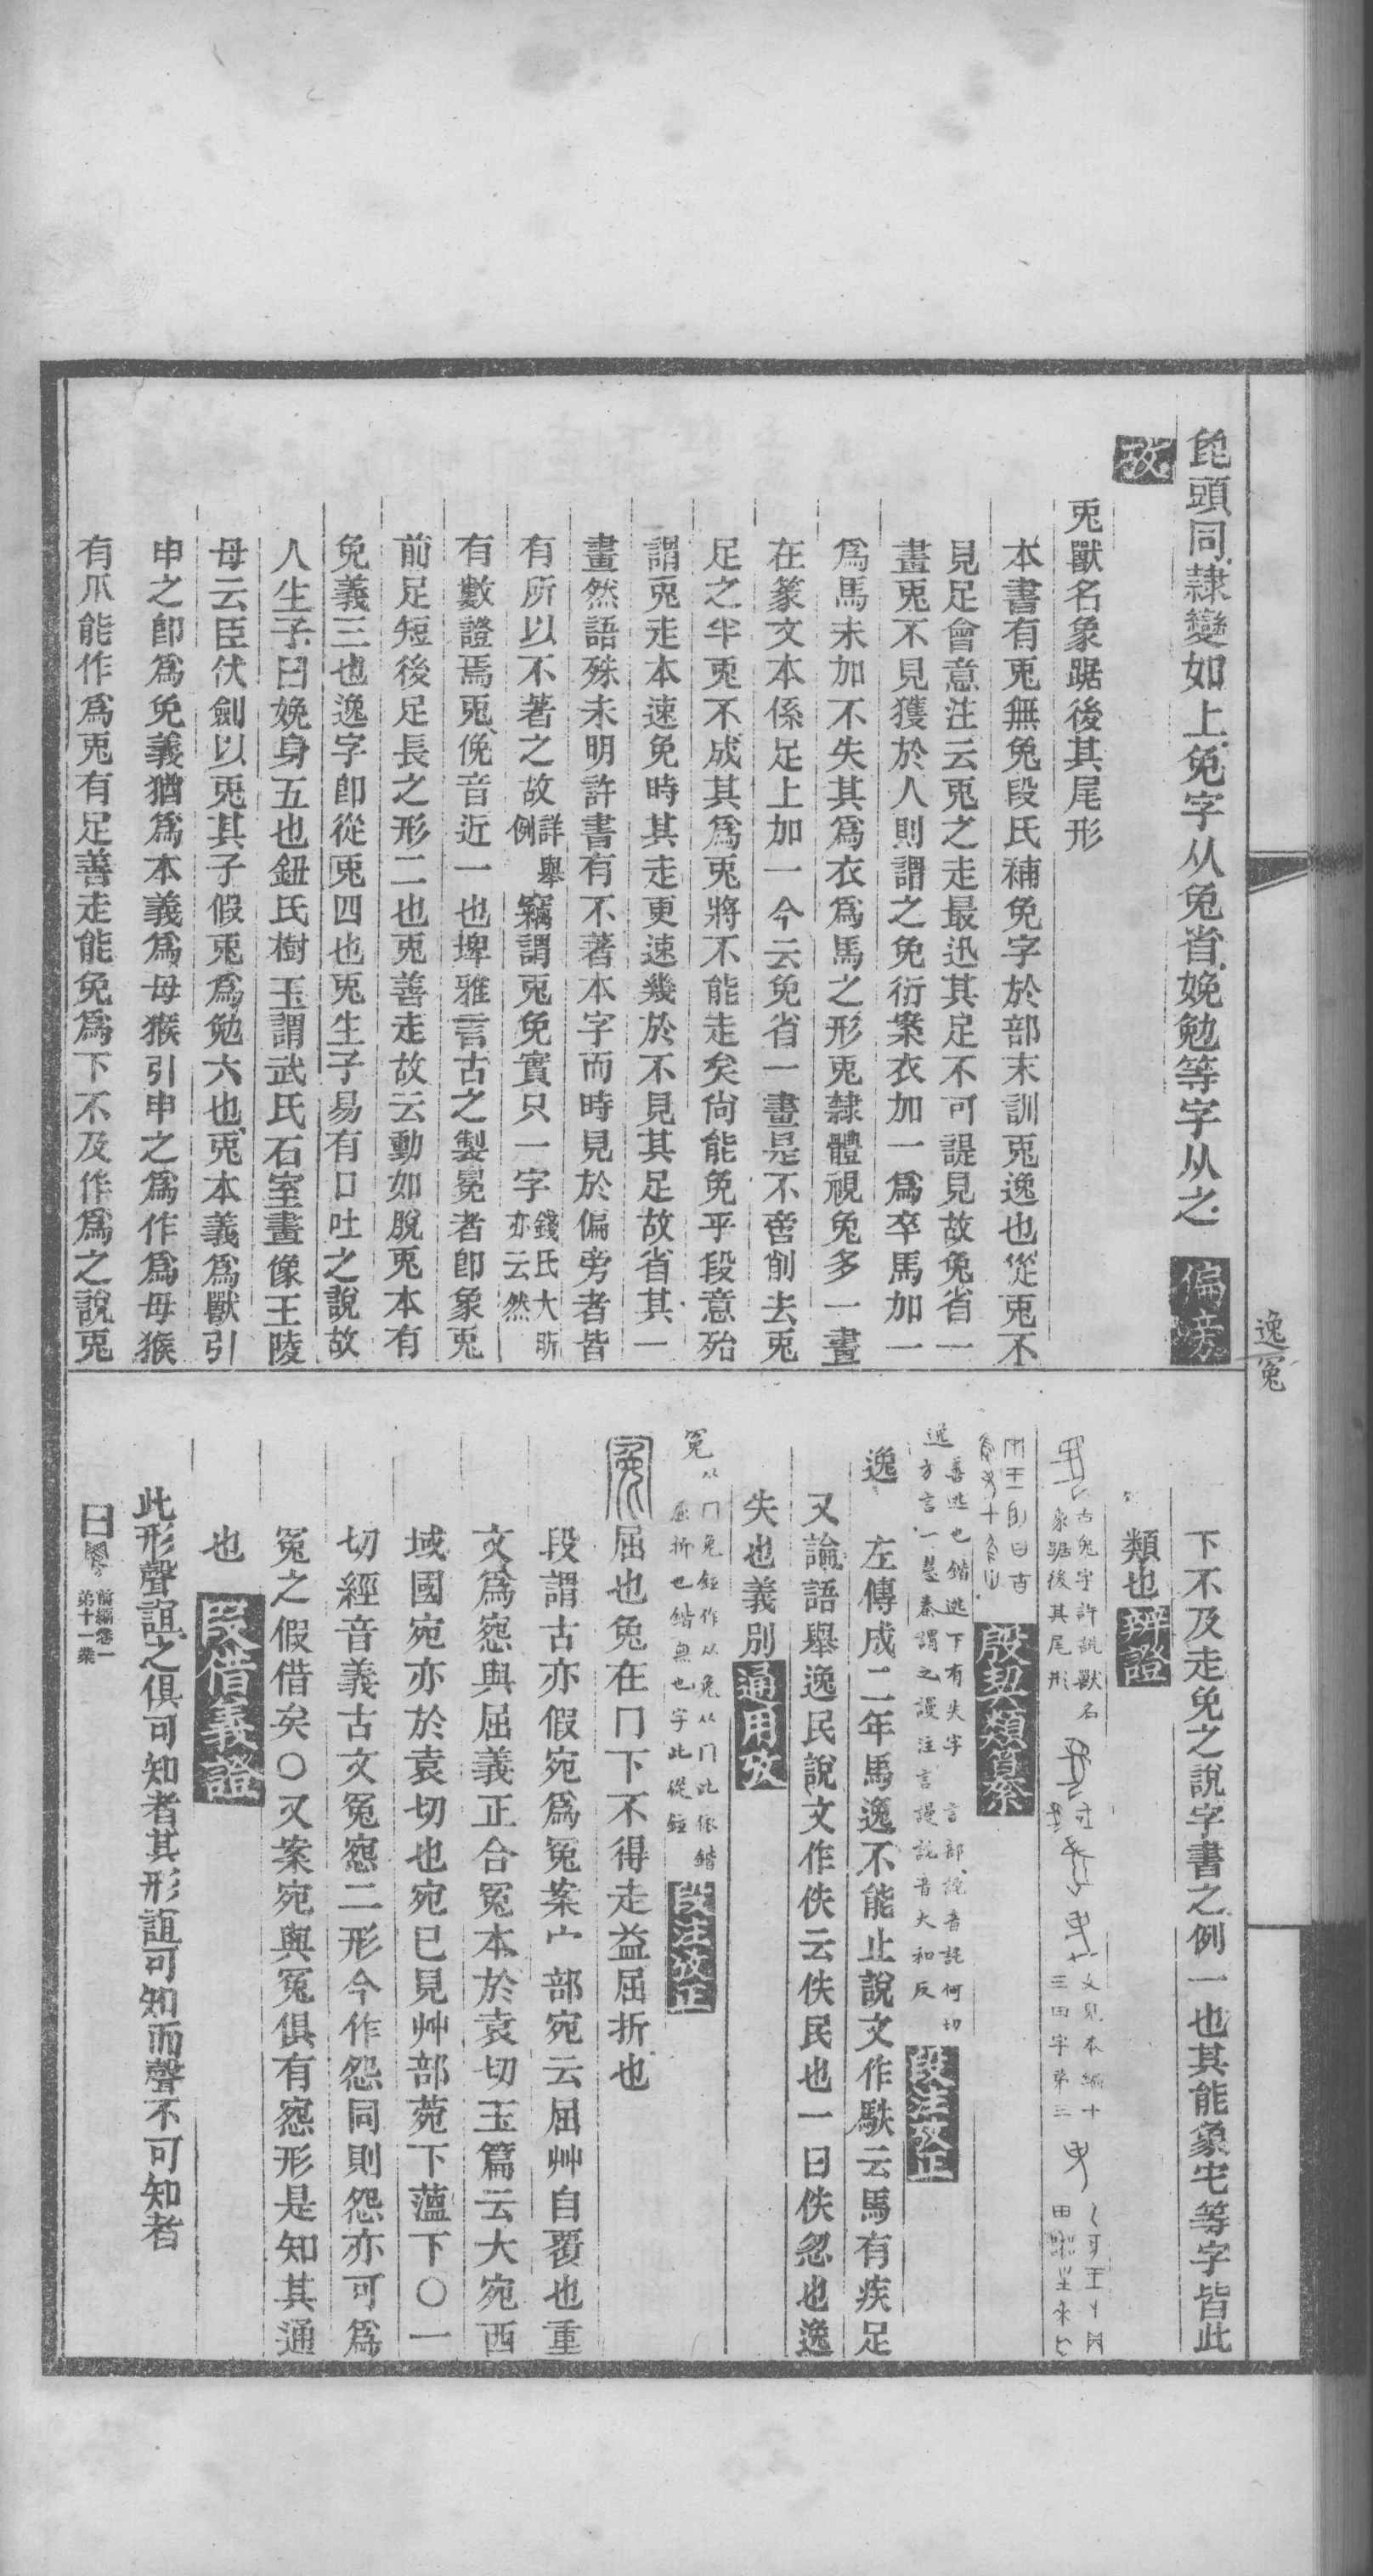 㲋頭同隷變如上兔字从兔省娩勉等字从之偏旁
攷
兎獸名象踞後其尾形
本書有兎無免段氏補免字於部末訓兎逸也從兎不
見足會意注云兎之走最迅其足不可諟見故免省一
畫兎不見獲於人則謂之免衍案衣加一爲卒馬加一
爲馬未加不失其爲衣爲馬之形兎隷體視免多一畫
在篆文本係足上加一今云免省一畫是不啻削去兎
足之半兎不成其爲兎將不能走矣尙能免乎段意殆
謂兎走本速免時其走更速幾於不見其足故省其一
畫然語殊未明許書有不著本字而時見於偏旁者皆
有所以不著之故詳舉例竊謂兎免實只一字錢氏大昕亦云然
有數證焉兎俛音近一也埤雅言古之製冕者卽象兎
前足短後足長之形二也兎善走故云動如脫兎本有
免義三也逸字卽從兎四也兎生子易有口吐之說故
人生子曰娩身五也鈕氏樹玉謂武氏石室畫像王陵
母云臣伏劍以兎其子假兎爲勉六也兎本義爲獸引
申之卽爲免義猶爲本義爲母猴引申之爲作爲母猴
有爪能作爲兎有足善走能免爲下不及作爲之說兎
逸 冤
下不及走免之說字書之例一也其能象宅等字皆此
類也辨證
古兔字許說獸名象踞後其尾形 文見本編十三田字弟三
殷契類纂
逸善逃也鍇逃下有失字 言部 音託何切
方言一 秦謂之謾注言謾訑音大和反段注攷正
逸 左傳成二年馬逸不能止說文作駃云馬有疾足
又論語舉逸民說文作佚云佚民也一曰佚忽也逸
失也義別通用攷
冤从冂兔鉉作从兔从冂此依鍇
屈折也鍇無也字此從鉉段注攷正
屈也兔在冂下不得走益屈折也
段謂古亦假宛爲冤案宀部宛云屈艸自覆也重
文爲惌與屈義正合冤本於袁切玉篇云大宛西
域國宛亦於袁切也宛已見艸部菀下薀下〇一
切經音義古文冤惌二形今作怨同則怨亦可爲
冤之假借矣〇又案宛與冤俱有惌形是知其通
也段借義證
此形聲誼之俱可知者其形誼可知而聲不可知者
曰 前編卷一弟十一葉